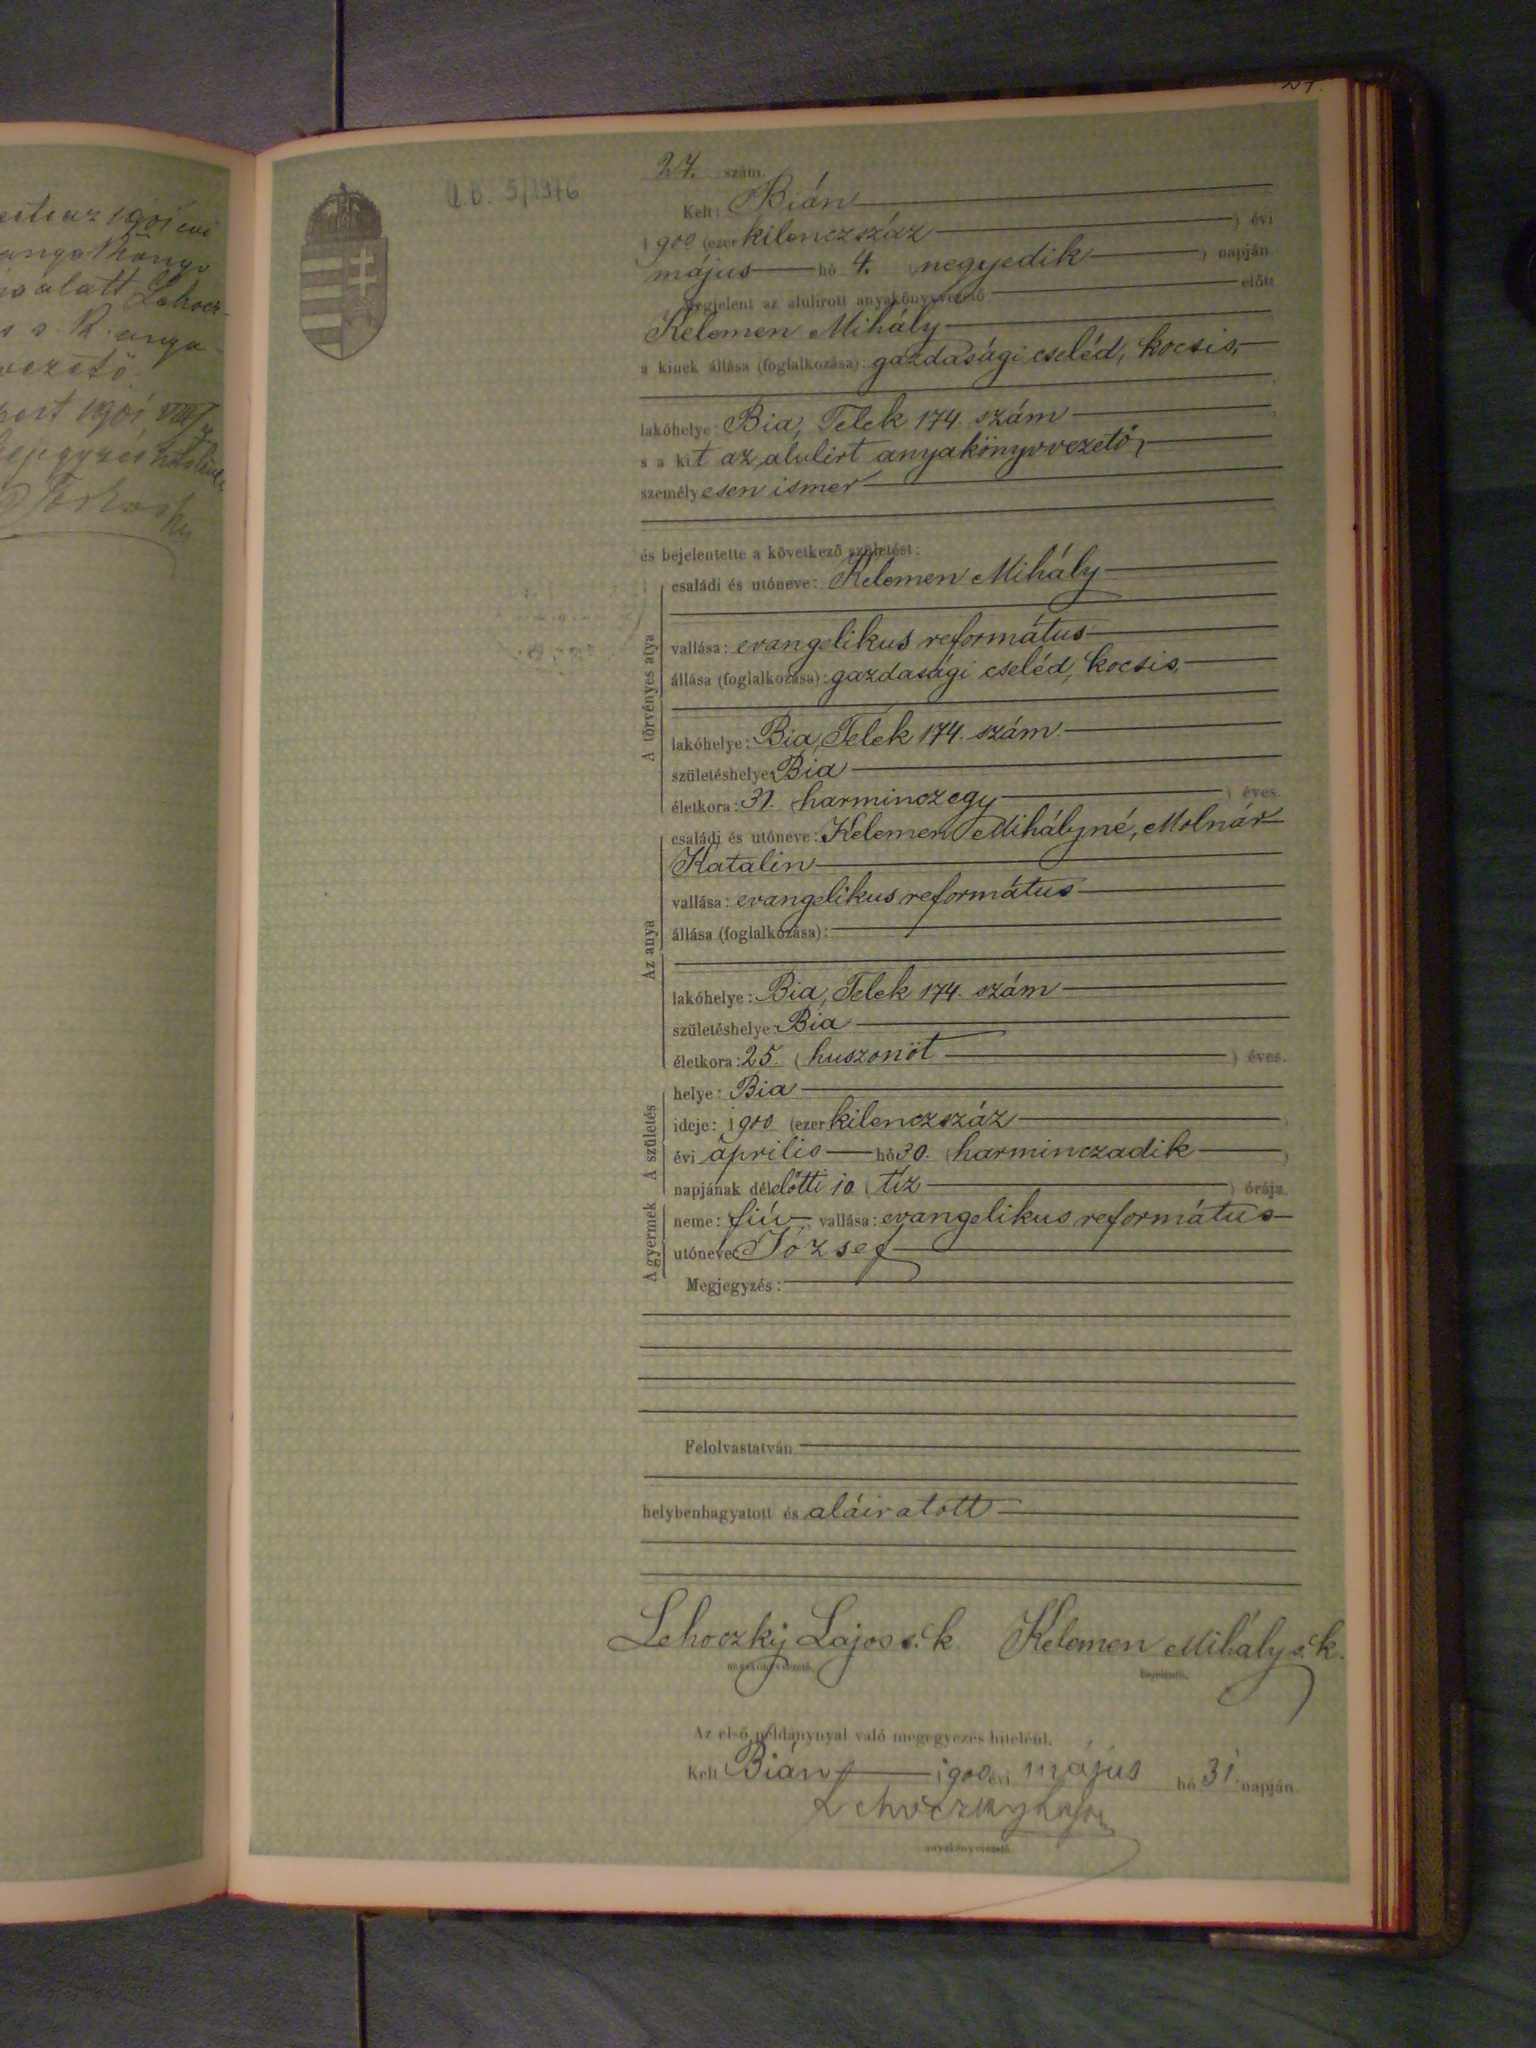 27.
27. szám
Ü.B. 5/1976
Kelt: Bián
1900 (ezer kilenczszáz) évi
május hó 4. (negyedik) napján
megjelent az alulírott anyakönyvvezető előtt
Kelemen Mihály
a kinek állása (foglalkozása): gazdasági cseléd, kocsis,
lakóhelye: Bia, Telek 174. szám
s a kit az alulírt anyakönyvvezető,
személyesen ismer
és bejelentette a következő születést:
A törvényes atya
családi és utóneve: Kelemen Mihály
vallása: evangelikus református
állása (foglalkozása): gazdasági cseléd, kocsis,
lakóhelye: Bia, Telek 174. szám.
születéshelye: Bia
életkora: 31. (harminczegy) éves.
Az anya
családi és utóneve: Kelemen Mihályné, Molnár
Katalin
vallása: evangelikus református
állása (foglalkozása):
lakóhelye: Bia, Telek 174. szám
születéshelye: Bia
életkora: 25. (huszonöt) éves.
A születés
helye: Bia
ideje: 1900 (ezer kilenczszáz
évi április hó 30. (harminczadik)
napjának délelőtti 10 (tíz) órája.
A gyermek
neme: fiú vallása: evangelikus református
utóneve: József
Megjegyzés:
Felolvastatván
helybenhagyatott és aláiratott
Lehoczky Lajos s. k. Kelemen Mihály s. k.
anyakönyvvezető. bejelentő.
Az első példánynyal való megegyezés hiteléül.
Kelt Bián 1900 évi május hó 31. napján
Lehoczky Lajos
anyakönyvvezető.